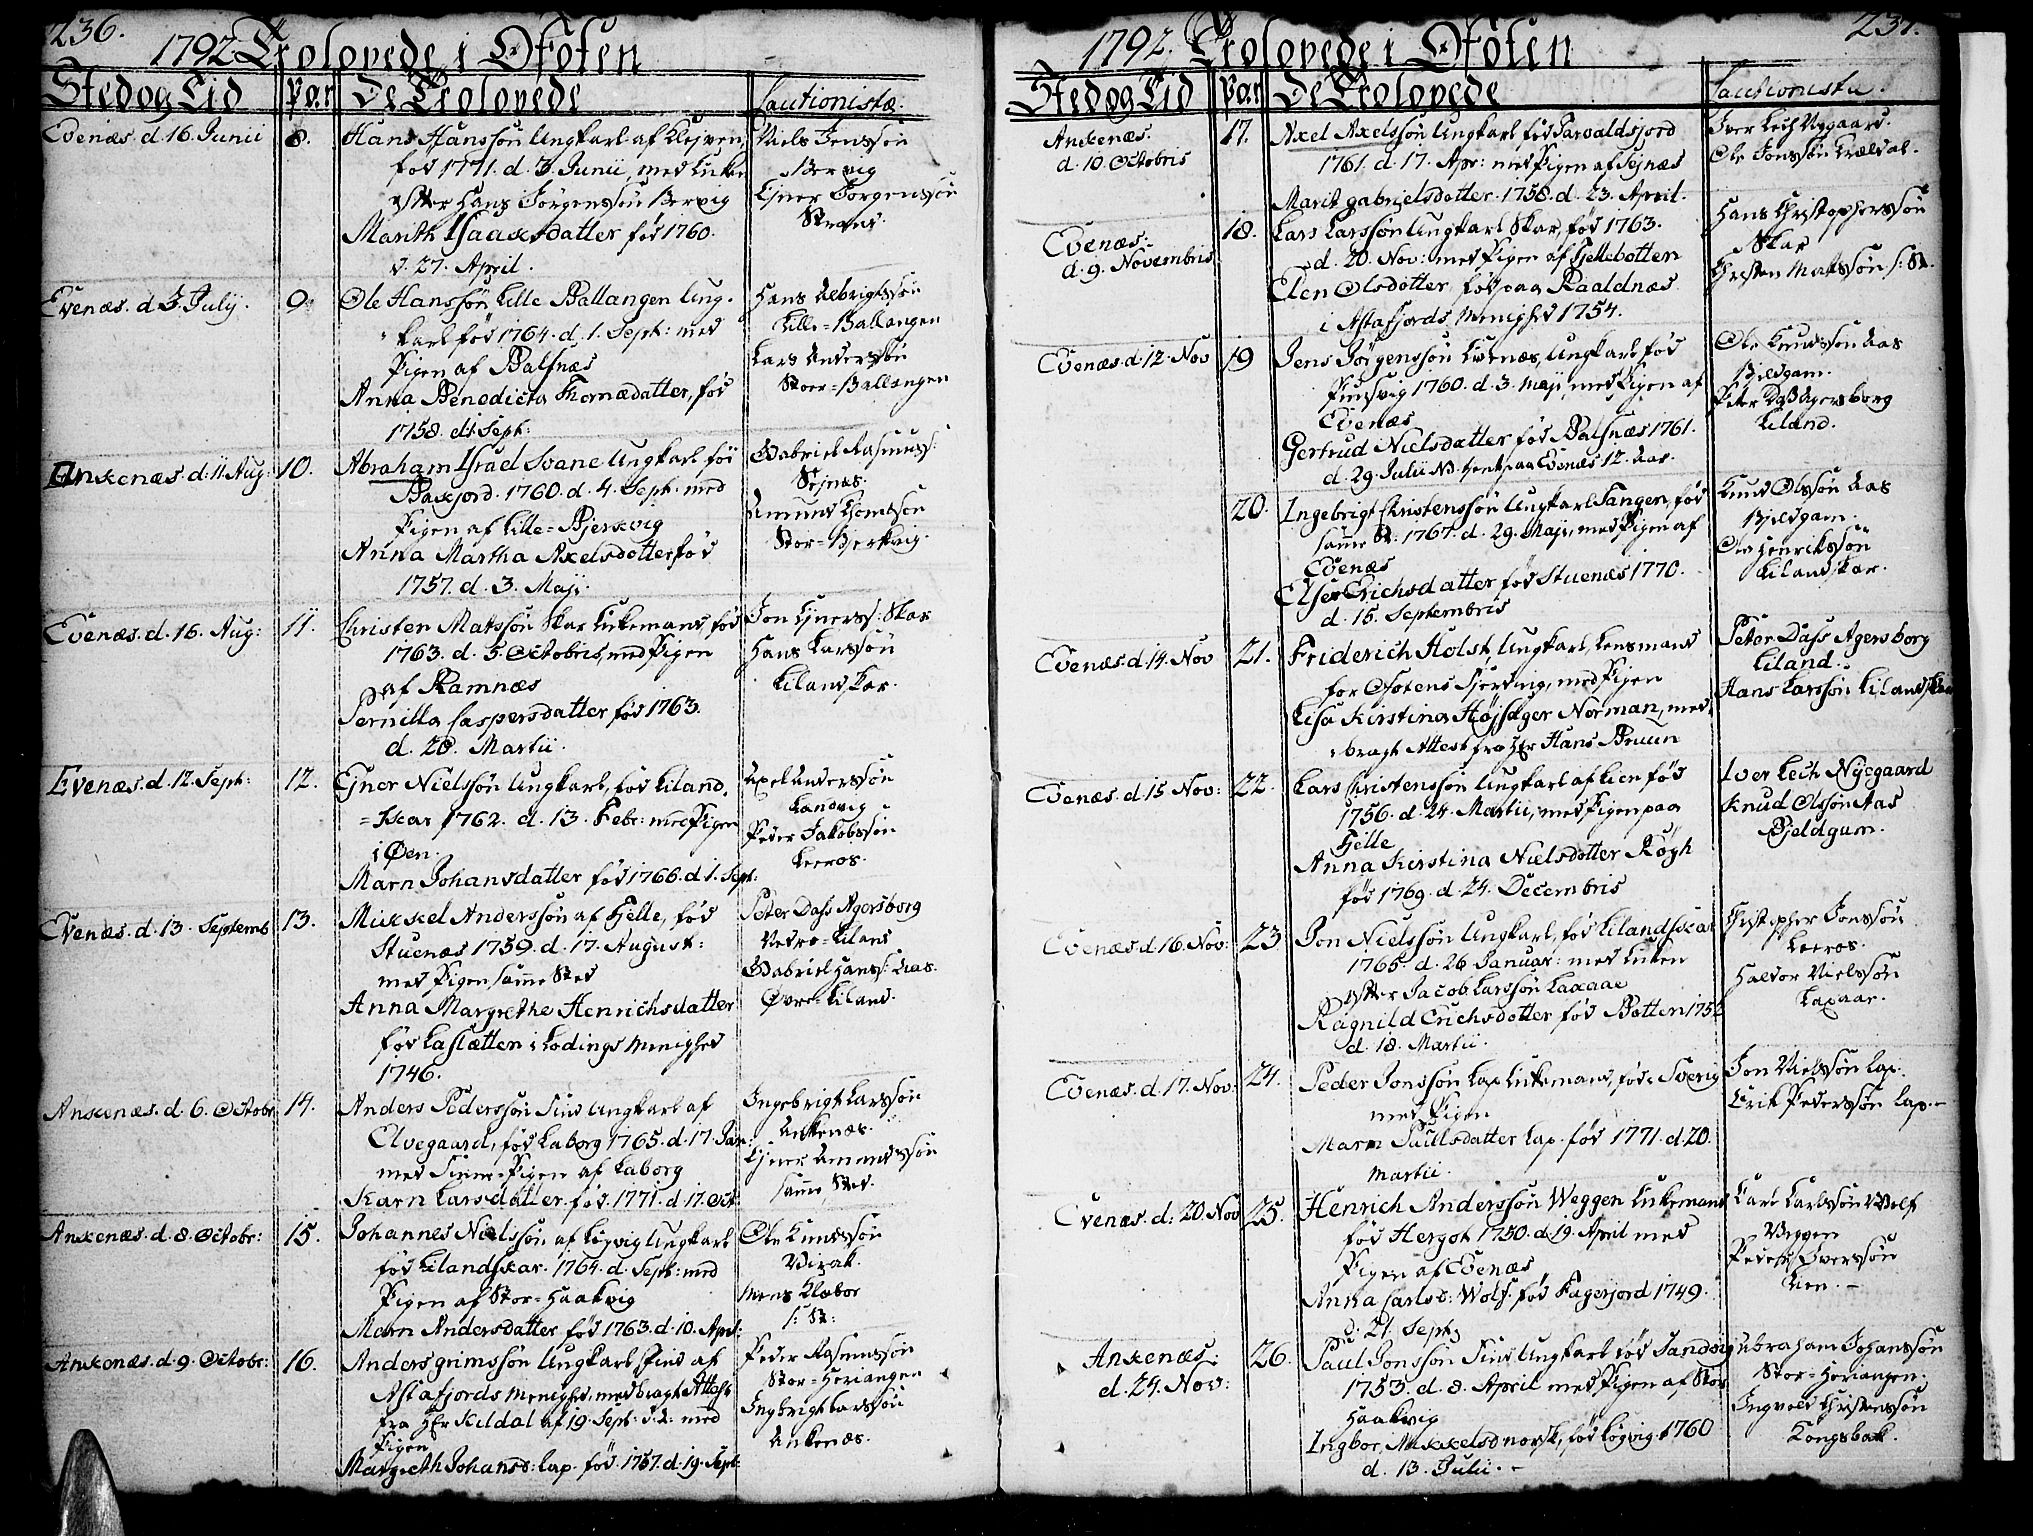 236.
1792 Trolovede i Ofoten
Sted og Tid Par De Trolovede Cautionistæ.
Evenæs. d. 16. Junii 8. Hans Hanssøn Ungkarl af
fød 1771. d. 3. Junii, med Enken
efter Hans Jørgenssøn Bervig
Marith Isaaksdatter fød 1760.
d. 27. April.
Niels Jenssøn
Bervig
Ejner Jørgenssøn
Strand.
Evenæs. d. 3. Julij. 9. Ole Hanssøn Lille Ballangen Ung-
karl fød 1764. d. 1. Sept: med
Pigen af Balsnæs
Anna Benedicta Thomædatter, fød
1758. d. 1 Sept:
Hans Albrigtssøn
Lille-Ballangen
Lars Anderssøn
Stoer-Ballangen
Ankenæs d. 11. Aug: 10. Abraham Israel Svane Ungkarl fød
1760. d. 4. Sept. med
Pigen af Lille-Bjerkvig
Anna Martha Axelsdotter fød
1757. d. 3. Maji.
Gabriel Rasmuss:
Sejnæs.
Amund
Stor-Bjerkvig.
Evenæs. d. 16. Aug: 11. Christen Matssøn Skar Enkemand, fød
1763. d. 5. Octobris, med Pigen
af Ramnæs
Pernilla Caspersdatter fød 1763.
d. 20. Martii.
Jon Ejners: Skar
Hans Larssøn
Lilandskar.
Evenæs. d. 12. Sept: 12. Ejner Nielssøn Ungkarl, fød Liland-
-skar 1762. d. 13. Febr: med Pigen
i Øen.
Marn Johansdatter fød 1766. d. 1. Sept:
Axel Anderssøn
Sandvig
Peder Jakobssøn
Leeros.
Evenæs. d. 13. Septemb 13. Mikkel Anderssøn af Fjelle, fød
Stuenæs 1759. d. 17. August:
med Pigen samme Sted
Anna Margrethe Henrichsdatter
fød i Lødings Menighed
1746.
Peter Dass Agersborg
Nedre-Liland
Gabriel Hanss: Aas.
Øvre-Liland.
Ankenæs. d. 6. Octobr 14. Anders Pederssøn Find Ungkarl af
Elvegaard, fød Laborg 1765. d. 17. Jan:
med Finne-Pigen af Laborg
Karn Larsdatter fød 1771. d. 17. Oct.
Ingebrigt Larssøn
Ankenæs.
Ejner Amundssøn
samme Sted.
Ankenæs. d. 8. Octobr: 15. Johannes Nielssøn af Ungkarl
fød Lilandskar. 1764. d. Sept: med
Pigen af Stor-Haakvig
Marn Andersdatter fød 1763. d. 10. April:
Ole Knudssøn
Virak.
Mons Klæbor
s: St:
Ankenæs. d. 9. Octobr: 16. Anders Grimssøn Ungkarl Find af
Astafjords Menighed, medbragt Attest
fra HEr Kildal af 19. Sept: d. A. med
Pigen
Margreth Johansd: Lap. fød 1757. d. 19. Sept:
Peder Rasmussøn
Stor-Herjangen
Ingbrigt Larssøn
Ankenæs.
237.
1792. Trolovede i Ofoten
Sted og Tid Par De Trolovede Cautionistæ.
Ankenæs.
d. 10. Octobris
17. Axel Axelssøn Ungkarl fød
1761. d. 17. Apr: med Pigen af Sejnæs
Marit Gabrielsdotter 1758. d. 23. April.
Iver Lech Nygaard.
Ole Jonssøn
Evenæs.
d. 9. Novembris
18. Lars Larssøn Ungkarl Skar, fød 1763.
d. 20. Nov: med Pigen af Fjellebotten
Elen Olsdotter fød paa Raaldnæs
i Astafjords Menighed 1754.
Hans Christopherssøn
Skar
Christen Matssøn s: St.
Evenæs. d. 12. Nov 19 Jens Jørgenssøn Evenæs, Ungkarl fød
1760. d. 3. Maji, med Pigen af
Evenæs
Gertrud Nielsdatter fød Balsnæs 1761.
d. 29. Julii paa Evenæs 12. Aar.
Ole Knudssøn Aas
Bjeldgam.
Peter Dass Agersborg
Liland.
20. Ingebrigt Christenssøn Ungkarl Tangen, fød
samme St: 1767. d. 29. Maji, med Pigen af
Evenæs
Else Erichsdatter fød Stuenæs 1770.
d. 15. Septembris
Knud Olssøn Aas
Bjeldgam.
Ole Henrikssøn
Lilandskar.
Evenæs. d. 14. Nov 21. Friderich Holst, Ungkarl, Lensmand
for Ofotens Fjerding, med Pigen
Lisa Kirstina Højsager Norman, med-
bragt Attest fra HEr Hans Bruun
Peter Dass Agersborg
Liland.
Hans Larssøn Lilandskar
Evenæs. d. 15 Nov: 22. Lars Christenssøn Ungkarl af Lien fød
1756. d. 24. Martii, med Pigen paa
Fjelle
Anna Kirstina Nielsdotter Røgh
fød 1769. d. 24. Decembris
Iver Lech Nyegaard
Knud Olssøn Aas
Bjeldgam.
Evenæs. d. 16. Nov: 23 Jon Nielssøn Ungkarl, fød Lilandskar
1765. d. 26 Januar: med Enken
efter Jacob Larssøn Laxaae
Ragnild Erichsdotter fød Botten 1752
d. 18. Martii.
Christopher Jonssøn
Leeros.
Halvor Nielssøn
Laxaar.
Evenæs. d. 17. Nov: 24. Peder Jonssøn Lap Enkemand, fød i Sverig
med Pigen
Marn Paulsdatter Lap. fød 1771. d. 20.
Martii.
Jon Nielssøn Lap.
Erik Pederssøn Lap.-
Evenæs. d: 20. Nov 25. Henrich Anderssøn Weggen Enkemand
fød Hergot 1750. d. 19. April med
Pigen af Evenæs
Anna Carlsd: Wolf fød Fagerjord 1749.
d. 21. Sept:
Carl Carlssøn Wolf
Veggen
Peder Iverssøn
Lien.-
Ankenæs:
d. 24. Nov:
26. Paul Jonssøn Find Ungkarl fød Sandvig
1753. d. 8. April med Pigen af Stor
Haakvig
Ingbor Mikkelsd norsk, fød 1760
d. 13. Julii.-
Abraham Johanssøn
Stor-Herjangen.
Ingvold Christenssøn
Kongsbak.